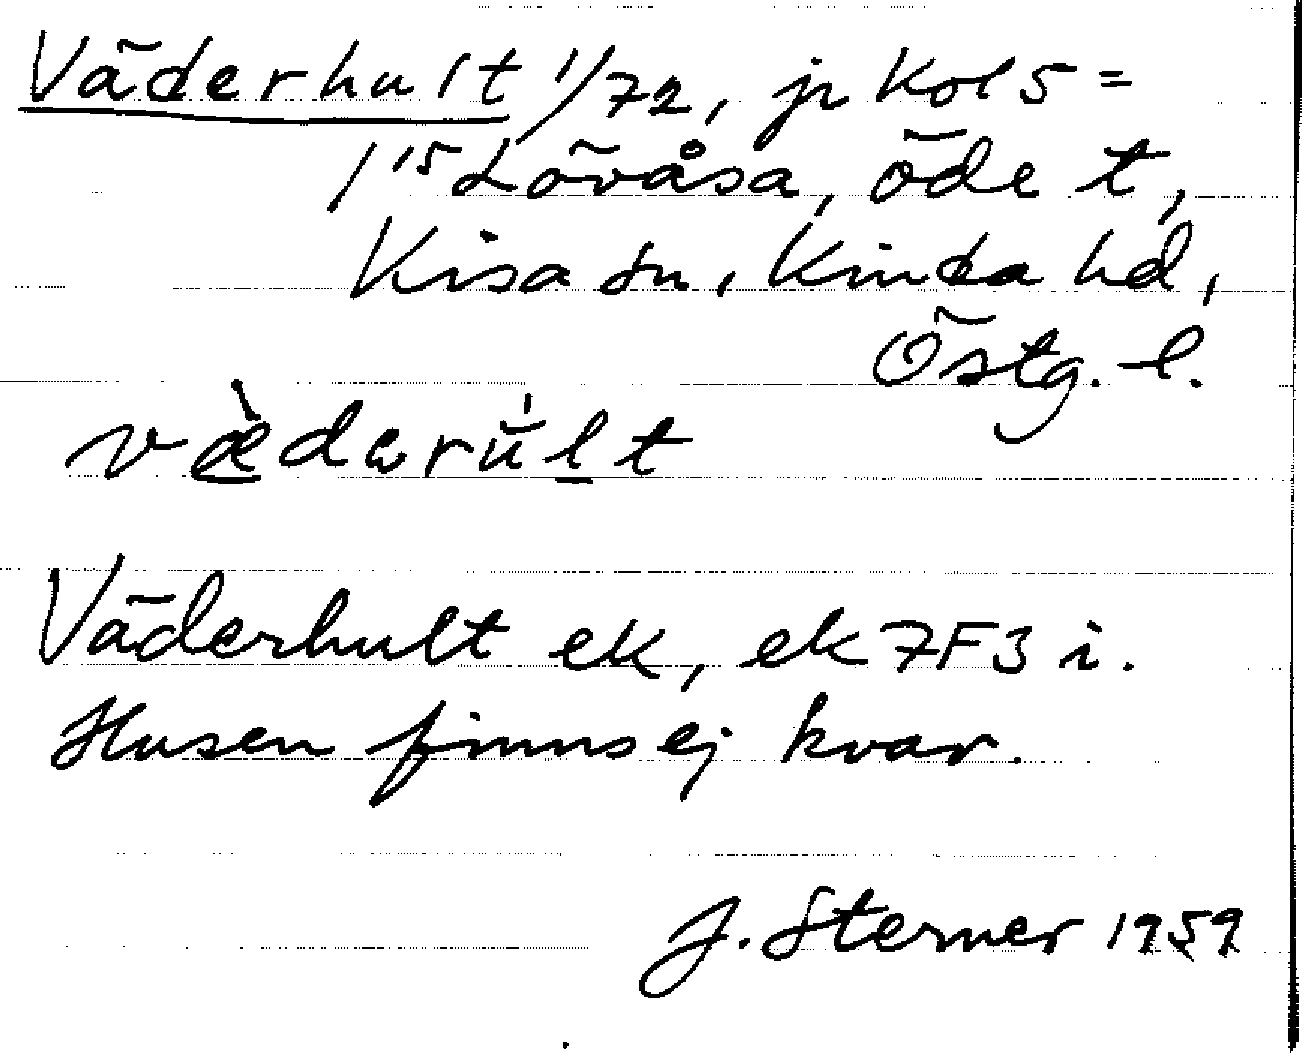 Väderhult 1/72, jr Kols=
1 15 Lövåsa, öde t,
Kisa sn, Kinda hd,
Östg. l.
væ̀dərült
Väderhult ek, ek 7F3 i.
Husen finns ej kvar.
J. Sterner 1959